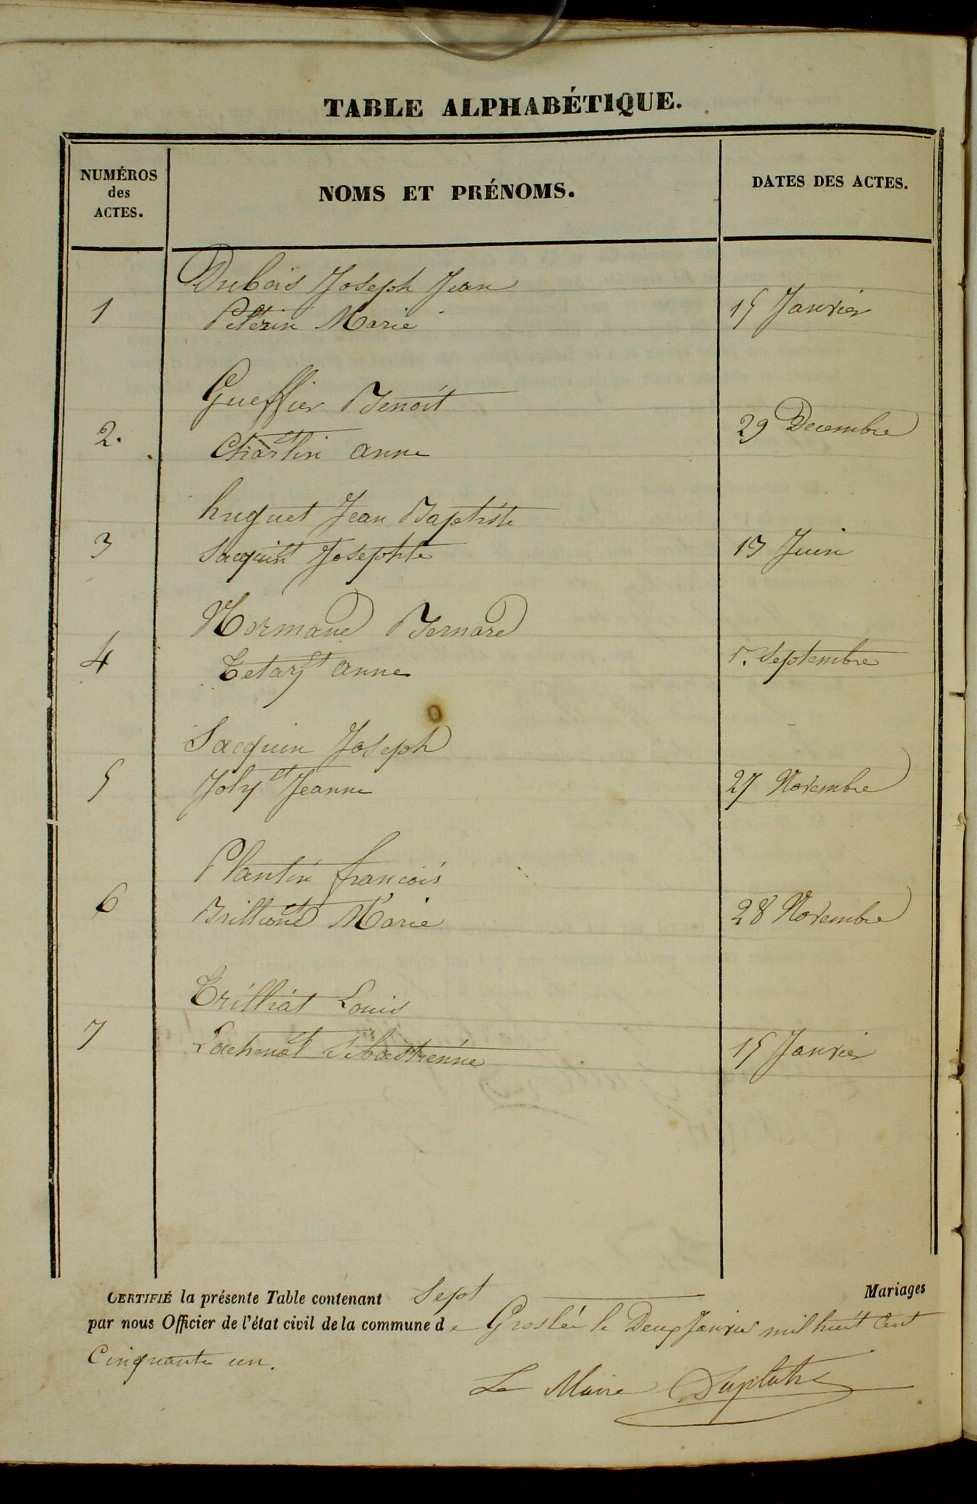 TABLE ALPHABÉTIQUE.
NUMÉROS
des
ACTES.
NOMS ET PRÉNOMS.
DATES DES ACTES.
Dubois Joseph Jean
1 Marie 15 Janvier
Gueffier Benoit
2. et anne 29 Decembre
huguet Jean Baptiste
3 Sacquin et Josephte 13 Juin
Normand Bernard
4 et anne Septembre
Sacquin Joseph
5 Joly et Jeanne 27 Novembre
Plantin françois
6 et Marie 28 Novembre
Trilliat Louis
7 et Sébastienne 15 Janvier
CERTIFIÉ la présente Table contenant Sept Mariages
par nous Officier de l'état civil de la commune de Groslée le Deux Janvier mil huit Cent
Cinquante un.
Le Maire